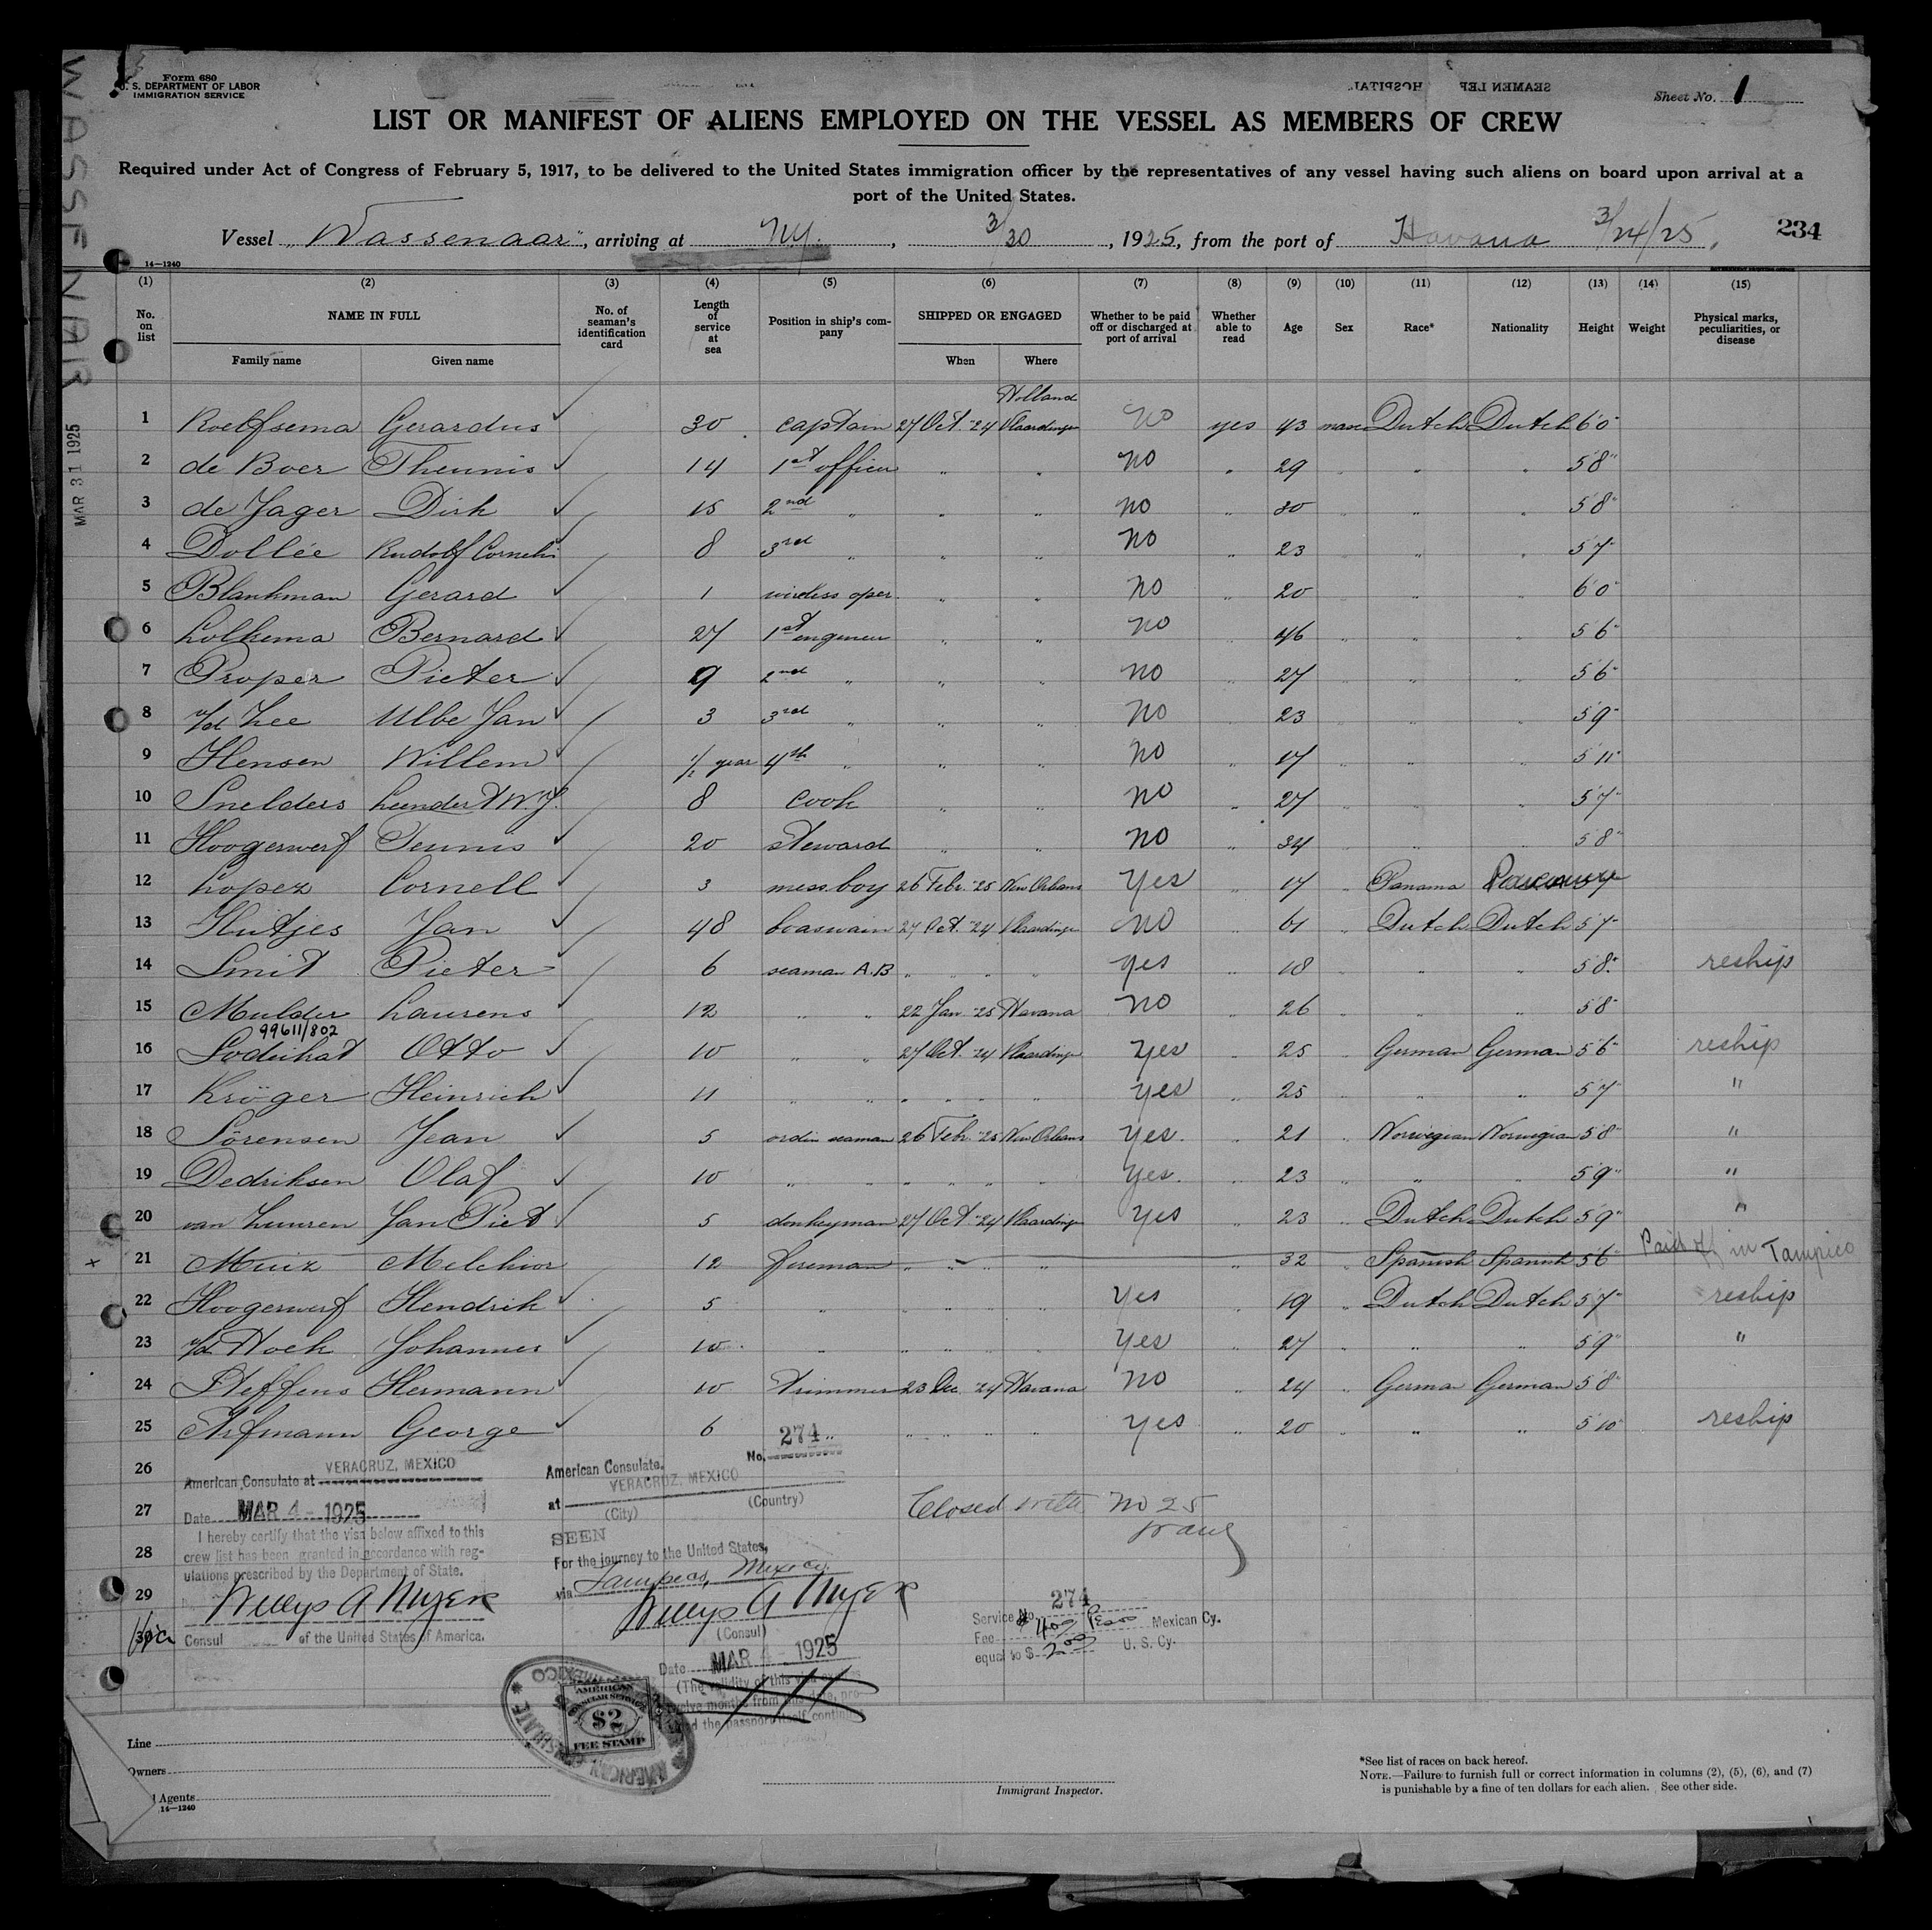 WASSENAAR
MAR 31 1925
Form 680
U. S. DEPARTMENT OF LABOR
IMMIGRATION SERVICE
SEAMEN LEF HOSPITAL
Sheet No. 1
LIST OR MANIFEST OF ALIENS EMPLOYED ON THE VESSEL AS MEMBERS OF CREW
Required under Act of Congress of February 5, 1917, to be delivered to the United States immigration officer by the representatives of any vessel having such aliens on board upon arrival at a
port of the United States.
Vessel „Wassenaar", arriving at NY., 3/30, 1925, from the port of Havana 3/24/25. 234
14—1240
(1) (2) (3) (4) (5) (6) (7) (8) (9) (10) (11) (12) (13) (14) (15)
No. on list NAME IN FULL No. of seaman's identification card Length of service at sea Position in ship's company SHIPPED OR ENGAGED Whether to be paid off or discharged at port of arrival Whether able to read Age Sex Race* Nationality Height Weight Physical marks, peculiarities, or disease
Family name Given name When Where
Holland
1 Roelfsema Gerardus 30 captain 27 Oct. '24 Vlaardingen No yes 43 Dutch Dutch 6'0"
2 de Boer Theunis 14 1st officer " " No " 29 " " 5'8"
3 de Jager Dirk 15 2nd " " " No " 30 " " " 5'8"
4 Dollée Rudolf Corneli 8 3rd " " " No " 23 " " " 5'7"
5 Blankman Gerard 1 wireless oper. " " No " 20 " " " 6'0"
6 Lolkema Bernard 27 1st engineer " " No " 46 " " " 5'6"
7 Proper Pieter 9 2nd " " " No " 27 " " " 5'6"
8 v/d Zee Ulbe Jan 3 3rd " " " No " 23 " " " 5'9"
9 Hensen Willem 1/2 year 4th " " " No " 17 " " " 5'11"
10 Snelders Leendert W.J. 8 cook " " No " 27 " " " 5'7"
11 Hoogerwerf Teunis 20 steward " " No " 34 " " " 5'8"
12 Lopez Cornell 3 mess.boy 26 Febr. '25 New Orleans Yes " 17 " Panama
13 Hutjes Jan 48 boaswain 27 Oct. '24 Vlaardingen No " 61 " Dutch Dutch 5'7"
14 Smit Pieter 6 seaman A.B " " " " yes " 18 " " " 5'8" reship
15 Mulder Laurens 12 " " 22 Jan '25 Havana No " 26 " " " 5'8"
99611/802
16 Otto 10 " " 27 Oct. '24 Vlaardingen Yes " 25 " German German 5'6" reship
17 Kröger Heinrich 11 " " " " " " yes " 25 " " " 5'7" "
18 Sörensen Jean 5 ordin seaman 26 Febr. '25 New Orleans Yes. " 21 " Norwegian Norwegian 5'8" "
19 Dedriksen Olaf 10 " " " " " " Yes. " 23 " " " 5'9" "
20 van Luuren Jan Piet 5 donkeyman 27 Oct '24 Vlaardingen Yes " 23 " Dutch Dutch 5'9" "
x 21 Muiz Melchior 12 fireman " " " " " 32 Spanish Spanish 5'6" Paid off in Tampico
22 Hoogerwerf Hendrik 5 " " " " " Yes " 19 " Dutch Dutch 5'7" reship
23 v/d Hoek Johannes 10 " " " " " Yes " 27 " " " 5'9" "
24 Steffens Hermann 10 trimmer 23 Dec '24 Havana No " 24 " German German 5'8"
25 Arfmann George 6 " " " " " Yes " 20 " " " 5'10" reship
26 American Consulate at VERACRUZ, MEXICO
American Consulate, No. 274
at VERACRUZ, MEXICO
(City) (Country)
27 Date MAR 4 - 1925
Closed with No 25
I hereby certify that the visa below affixed to this
28 crew list has been granted in accordance with regulations prescribed by the Department of State.
SEEN
For the journey to the United States,
via Tampico, Mexico.
29 Willys A Myer
Willys A Myer
30 Consul of the United States of America.
(Consul)
Date MAR 4 - 1925
(The validity of this visa expires
twelve months from this date, provided the passport itself continues
Service No. 274
Fee Pesos Mexican Cy.
equal to $ 2.00 U. S. Cy.
AMERICAN CONSULATE MEXICO
AMERICAN
CONSULAR SERVICE
$2
FEE STAMP
Line
Owners
Agents
14—1240
Immigrant Inspector.
*See list of races on back hereof.
NOTE.—Failure to furnish full or correct information in columns (2), (5), (6), and (7)
is punishable by a fine of ten dollars for each alien. See other side.